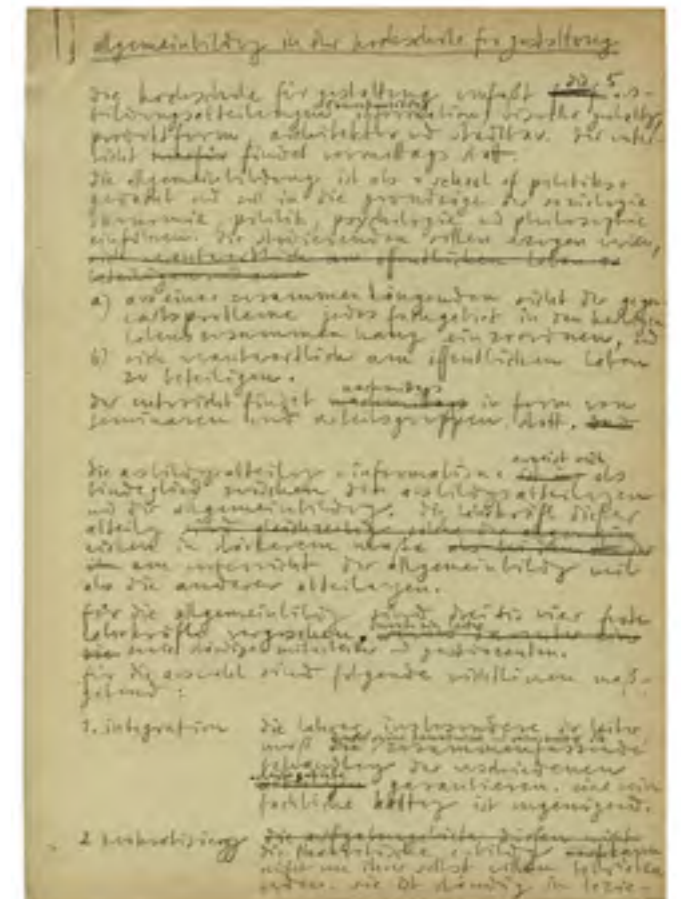 allgemeinbildung in der hochschule für gestaltung
die hochschule für gestaltung umfaßt die 5 aus-
bildungsabteilungen information, visuelle gestaltg,
produktform, architektur und stadtbau. der unter-
richt findet vormittags statt.
die allgemeinbildung ist als school of politiks
gedacht und soll in die grundzüge der soziologie
ökonomie, politik, psychologie und philosophie
einführen. die studierenden sollen erzogen werden,
sich verantwortlich am öffentlichen leben zu
beteiligen
a) aus einer zusammenhängenden sicht der gegen
wartsprobleme jedes fachgebiet in den
lebenszusammenhang einzuordnen, und
b) sich verantwortlich am öffentlichen leben
zu beteiligen.
nachmittags
der unterricht findet in form von
seminaren und arbeitsgruppen statt.
die ausbildungsabteilung information als
bindeglied zwischen den ausbildungsabteilungen
und der allgemeinbildung. die lehrkräfte dieser
abteilung
wirken in stärkerem maße
am unterricht der allgemeinbildung mit
als die anderer abteilungen.
für die allgemeinbildung sind drei bis vier feste
lehrkräfte vorgesehen,
ständige mitarbeiter und gastdozenten.
für die auswahl sind folgende richtlinien maß-
gebend:
1. integration die lehrer, insbesondere der leiter,
muß die zusammenfassende
behandlung der verschiedenen
garantieren. eine rein
fachliche haltung ist ungenügend.
2 die aufgabengebiete dürfen nicht
die theoretische
nicht um ihrer selbst willen betrieben
werden. sie ist ständig in bezie-